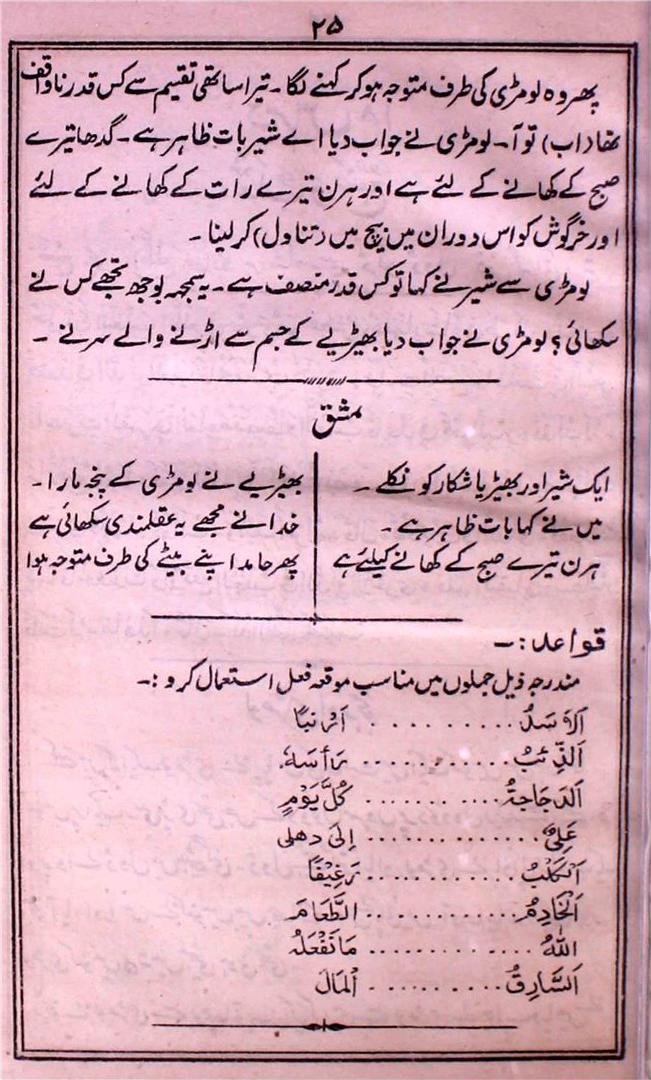 ۲۵
پھر وہ لومڑی کی طرف متوجہ ہو کر کہنے لگا۔ تیرا ساتھی تقسیم سے کس قدر ناواقف
تھا (اب) تو آ۔ لومڑی نے جواب دیا اے شیر بات ظاہر ہے۔ گدھا تیرے
صبح کے کھانے کے لئے ہے اور ہرن تیرے رات کے کھانے کے لئے
اور خرگوش کو اس دوران میں بیچ میں (تناول) کر لینا۔
لومڑی سے شیر نے کہا تو کس قدر منصف ہے۔ یہ سمجھ بوجھ تجھے کس نے
سکھائی؟ لومڑی نے جواب دیا بھیڑیے کے جسم سے اڑنے والے سر نے۔
مشق
ایک شیر اور بھیڑیا شکار کو نکلے۔
میں نے کہا بات ظاہر ہے۔
ہرن تیرے صبح کے کھانے کیلئے ہے
بھیڑیے نے لومڑی کے پنجہ مارا۔
خدا نے مجھے یہ عقلمندی سکھائی ہے
پھر حامد اپنے بیٹے کی طرف متوجہ ہوا
قواعد:۔
مندرجہ ذیل جملوں میں مناسب موقعہ فعل استعمال کرو:۔
اَلْاَسَدُ .......... اَرْنَبًا
اَلذِّئْبُ .......... رَأْسَهٗ
اَلدَّجَاجَةُ .......... كُلَّ يَوْمٍ
عَلِیٌّ .......... اِلٰی دهلی
اَلْكَلْبُ .......... رَغِيْفًا
اَلْخَادِمُ .......... الطَّعَامَ
اَللهُ .......... مَا تَفْعَلُهُ
اَلسَّارِقُ .......... اَلْمَالَ